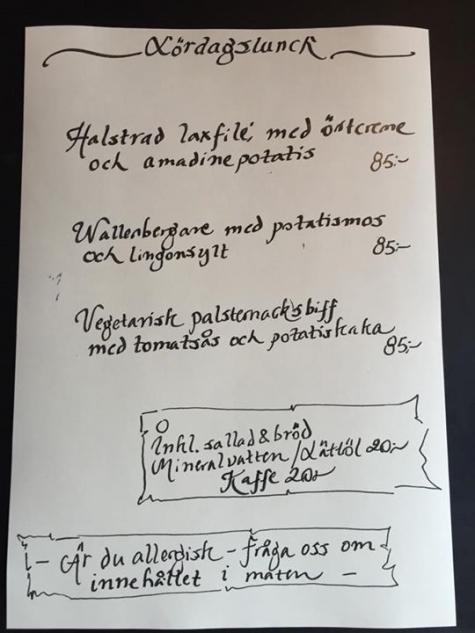 Lördagslunch
Halstrad laxfilé, med örtcreme
och amadinepotatis
85:-
Wallenbergare med potatismos
och lingonsylt
85:-
Vegetarisk palsternacksbiff
med tomatsås och potatiskaka
85:-
Inkl. sallad & bröd
Mineralvatten / Lättöl 20:-
Kaffe 20:-
- Är du allergisk - fråga oss om
innehållet i maten -